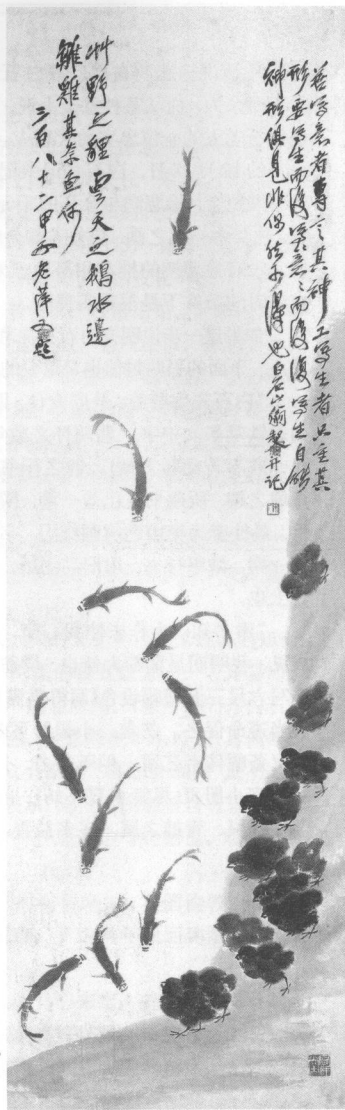 善写意者专言其神工写生者只重其
形要写生而后写意写意而后复写生自能
神形俱见非偶然可得也白石山翁齐璜并记
草野之狸云天之鹅水边
雏鸡其奈鱼何
三百八十二甲子老萍